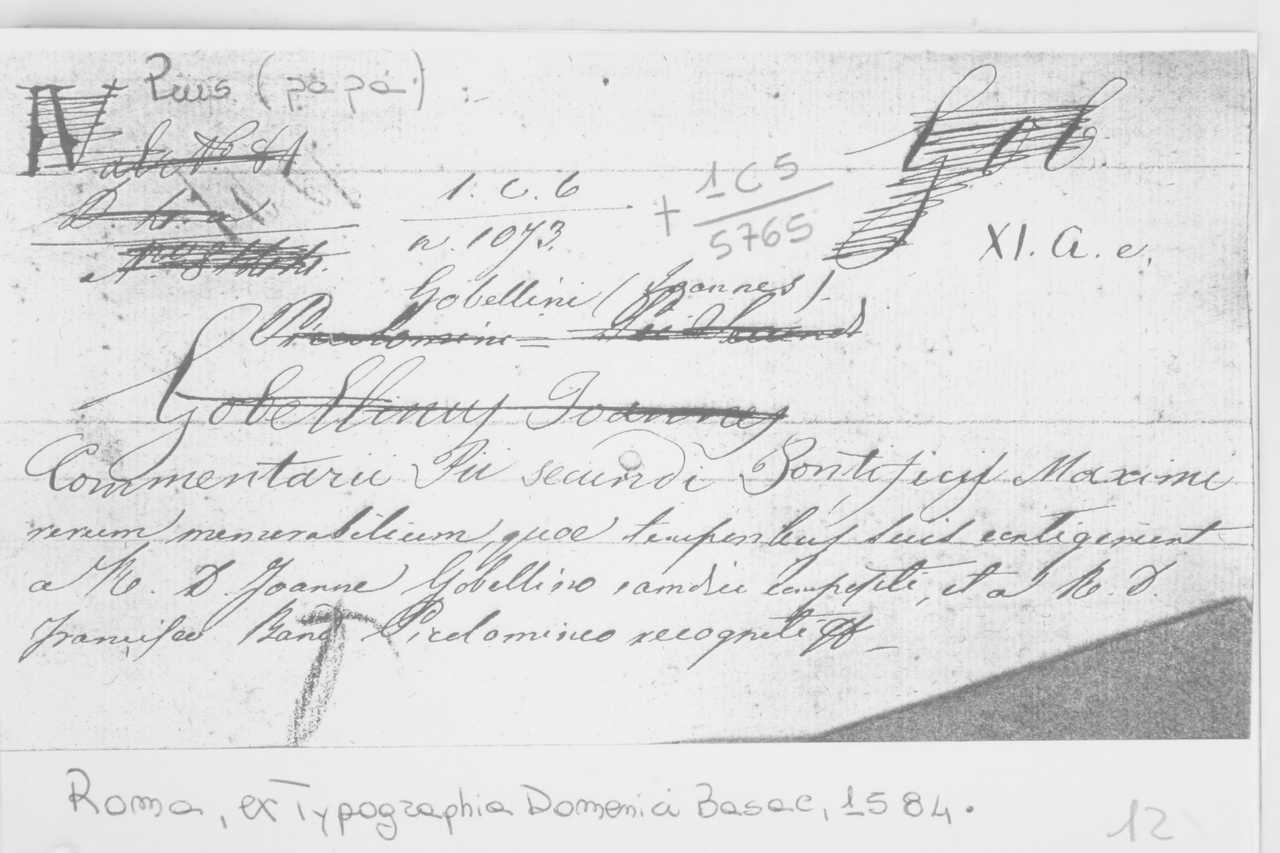 Pius (papa)
1. C. 6
n. 1073.
+ 1C5
5765
XI. A. e.
Gobellini (Joannes)
Gobellinus Joannes
Commentarii Pii secundi Pontificis Maximi
rerum memorabilium, quae temporibus suis contigerunt
a R. D. Joanne Gobellino iamdiu compositi, et a R. D.
Francisco Band Picolomineo recogniti
Roma, ex Typographia Domenici Basae, 1584.
12